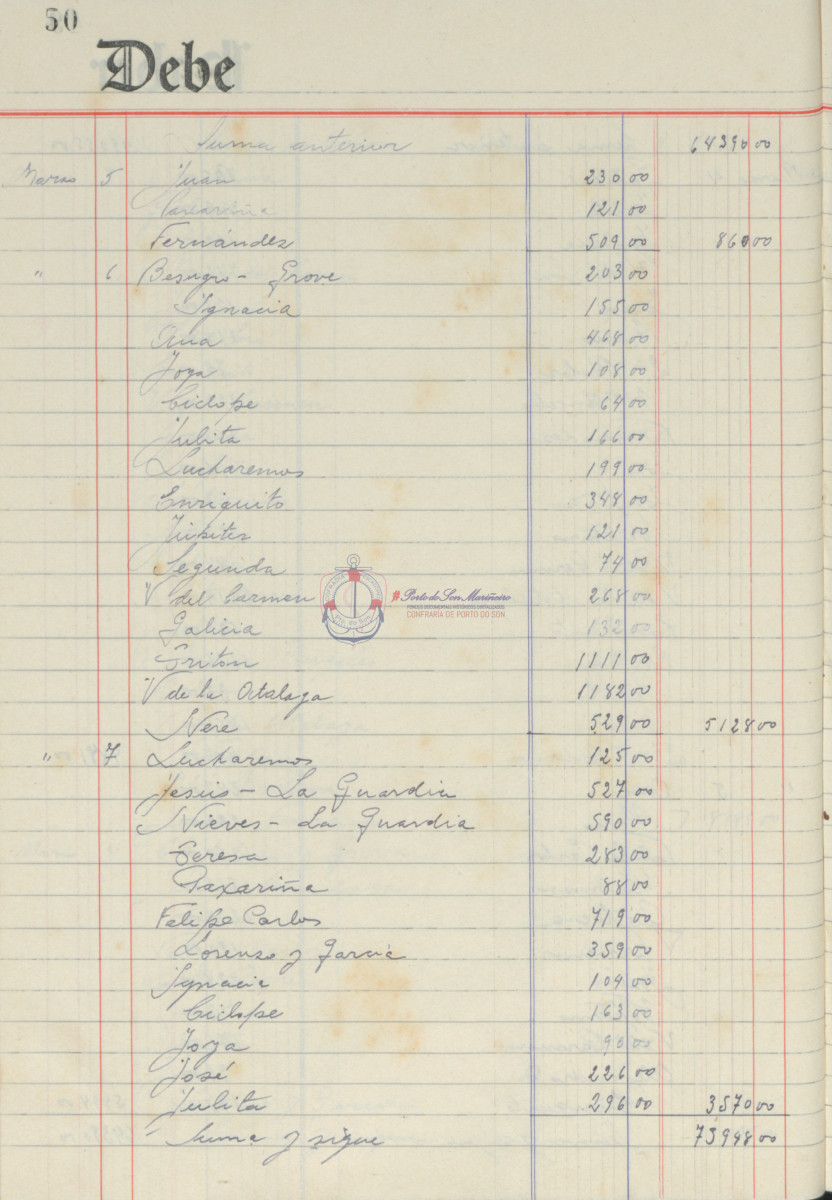 50
Debe
Suma anterior 64390 00
Marzo 5 Juan 230 00
Paxariña 121 00
Fernández 509 00 860 00
" 6 Besugo - Grove 203 00
Ignacia 155 00
Ana 468 00
Joya 108 00
Ciclope 64 00
Julita 166 00
Lucharemos 199 00
Enriquito 348 00
Júpiter 121 00
Segunda 74 00
V del Carmen 268 00
#Porto do Son Mariñeiro
FONDOS DOCUMENTAIS HISTÓRICOS DIXITALIZADOS
CONFRARÍA DE PORTO DO SON
Galicia 132 00
Triton 1111 00
V de la Atalaya 1182 00
Nere 529 00 5128 00
" 7 Lucharemos 125 00
Jesús - La Guardia 527 00
Nieves - La Guardia 590 00
Teresa 283 00
Paxariña 88 00
Felipe Carlos 719 00
Lorenzo y García 359 00
Ignacia 104 00
Ciclope 163 00
Joya 90 00
José 226 00
Julita 296 00 3570 00
Suma y sigue 73948 00